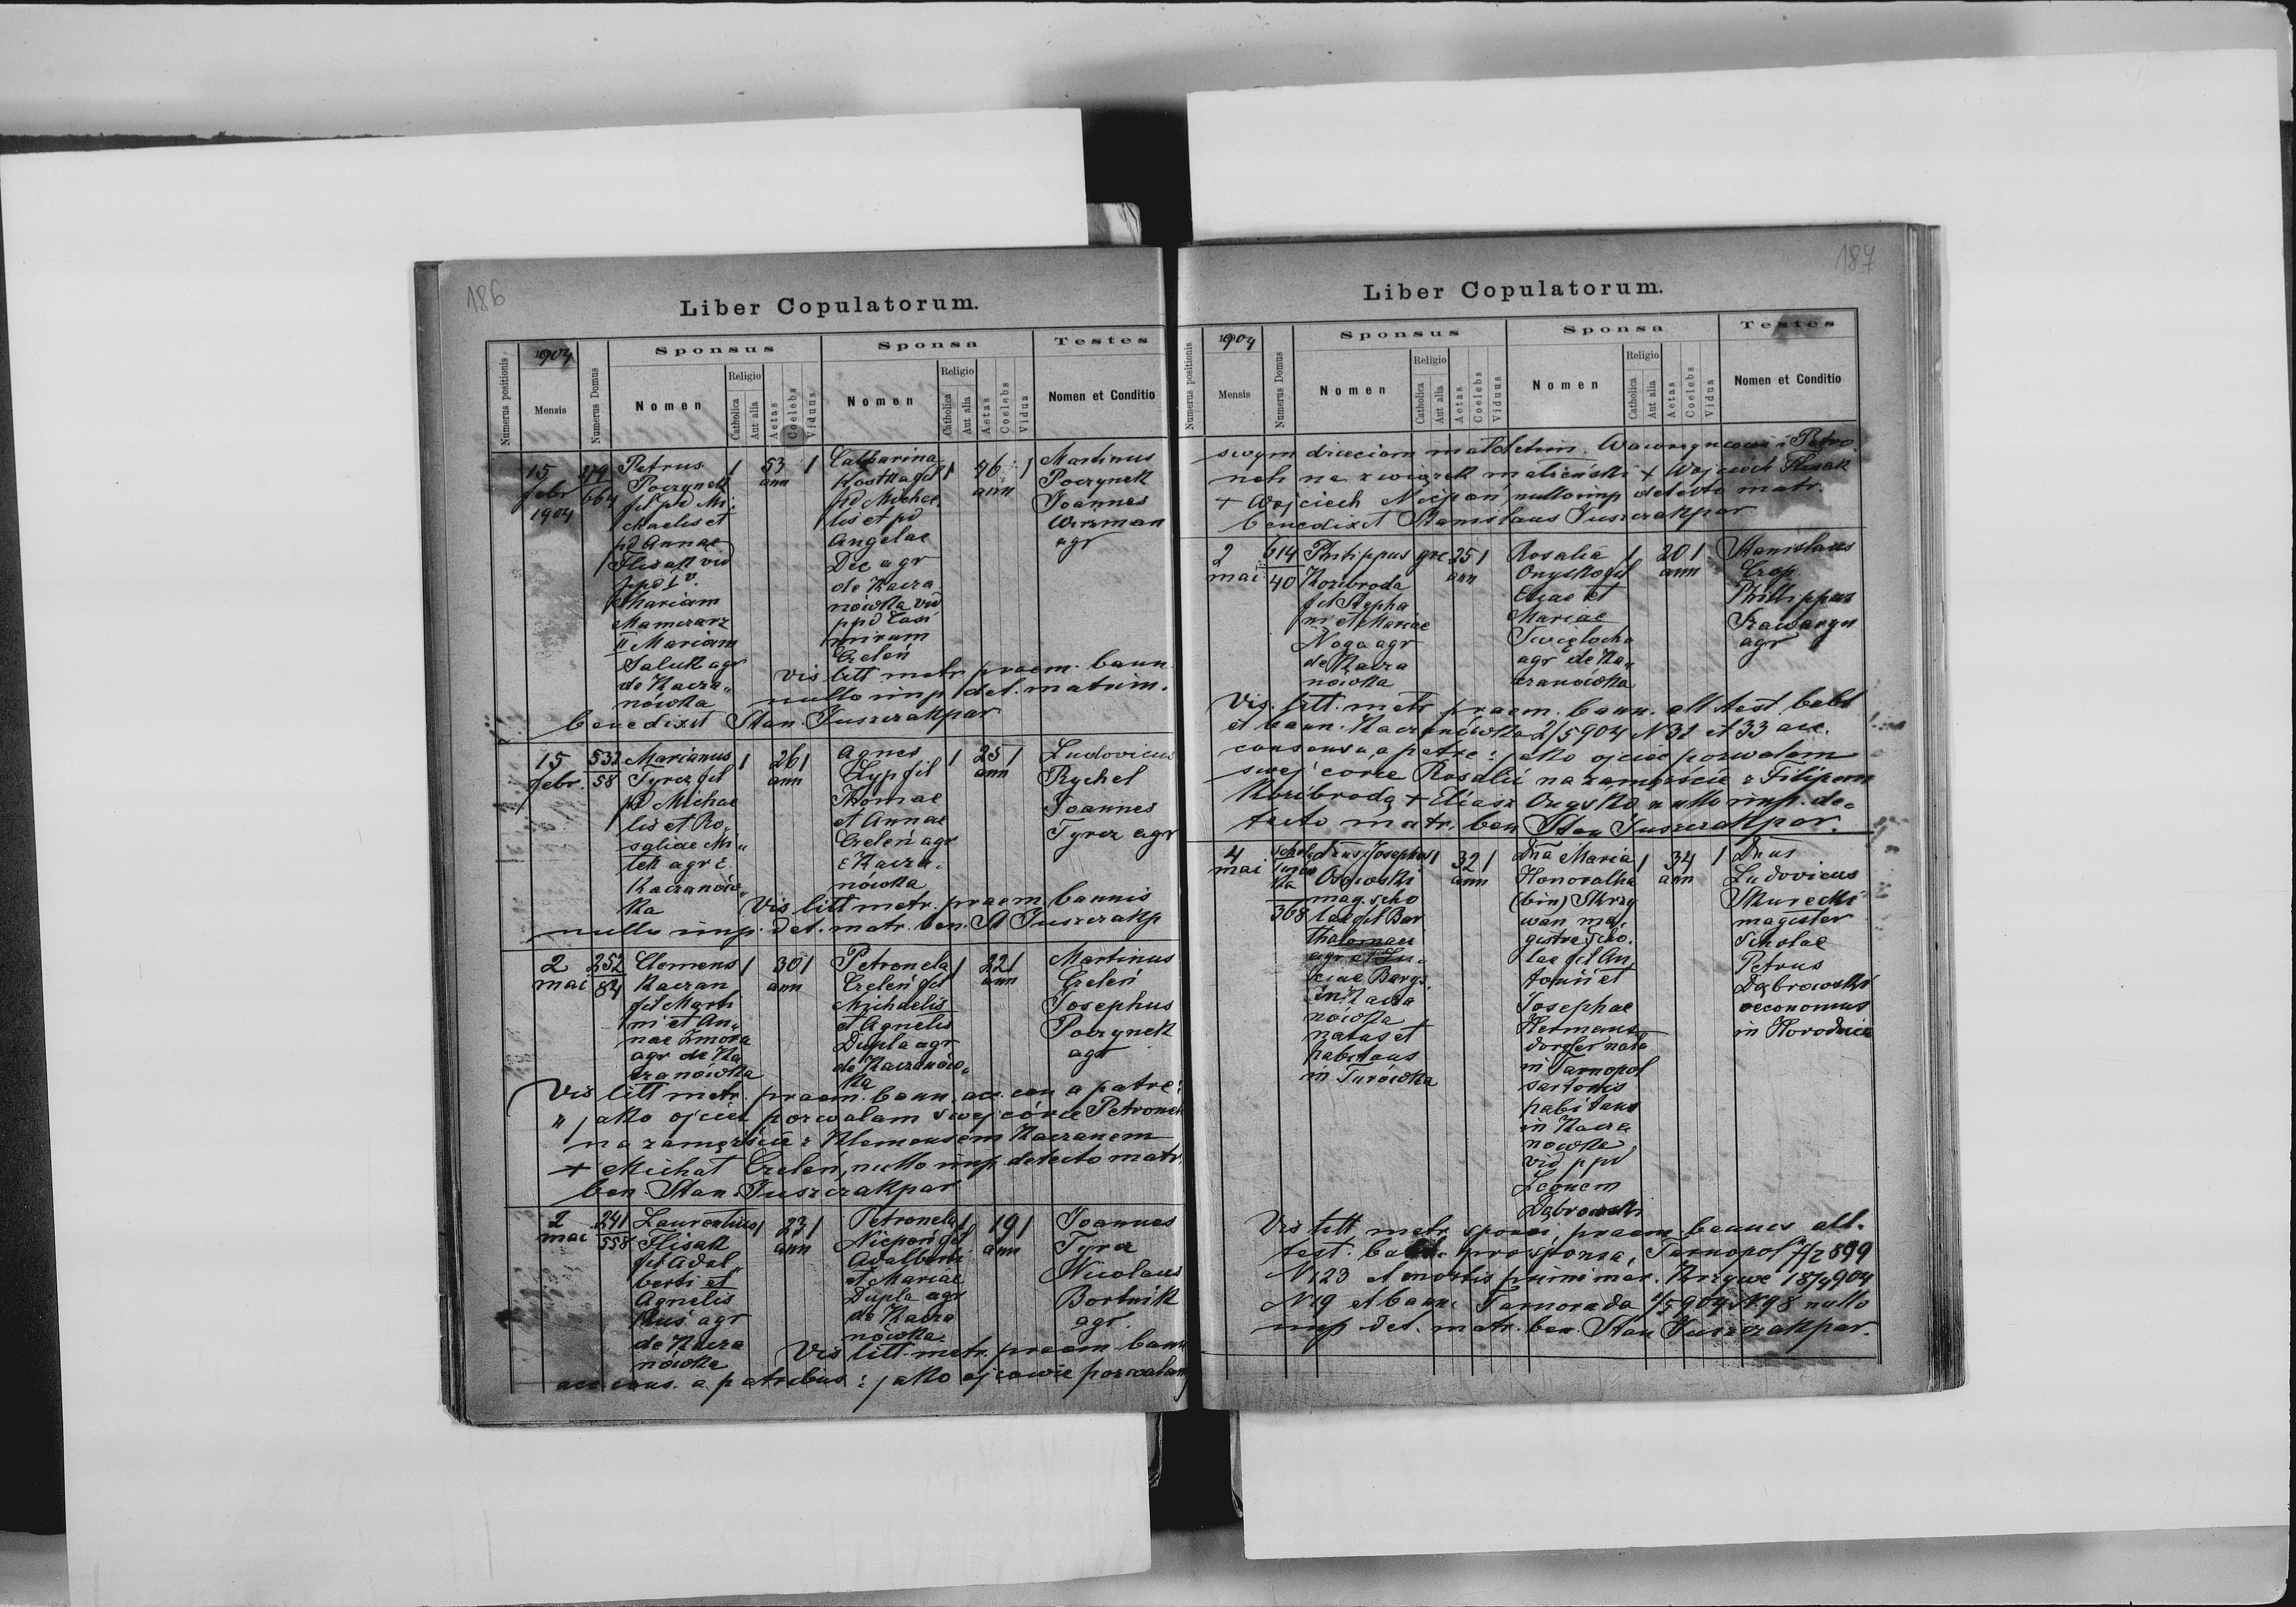 186
Liber Copulatorum.
Numerus positionis
1904
Mensis
Numerus Domus
Sponsus
Nomen
Religio
Catholica
Aut alia
Aetas
Coelebs
Viduus
Sponsa
Nomen
Religio
Catholica
Aut alia
Aetas
Coelebs
Vidua
Testes
Nomen et Conditio
15
febr
1904
279
664
Petrus
Poczynek
fil pd Mi
chaelis et
pd Annae
Flisak vid
ppd I v.
Mariam
Mamczarz
II Mariam
Saluk agr
de Kacza„
nówka
1
53
ann
1
Catharina
Kostka fil
pd Michae
lis et pd
Angelae
Dec agr
de Kacza
nówka vid
ppd Casi
mirum
Czeleń
1
46
ann
1
Martinus
Poczynek
Joannes
Wizman
agr
vis litt metr praem. bann.
nullo imp det. matrim.
benedixit Stan Juszczak par
15
febr.
532
58
Marianus
Tyrcz fil
pd Michae
lis et Ro„
saliae Mi„
tek agr e
Kaczanów„
ka
1
26
ann
1
Agnes
Zyp fil
Thomae
et Annae
Czeleń agr
e Kacza„
nówka
1
25
ann
1
Ludovicus
Rychel
Joannes
Tyrcz agr
Vis litt metr. praem. bannis
nullo imp. det. matr. ben. St Juszczak p
2
mai
252
84
Clemens
Kaczan
fil Marti
ni et An„
nae Zmora
agr de Ka
czanówka
1
30
ann
1
Petronela
Czeleń fil
Michaelis
et Agnetis
Dupla agr
de Kaczanów„
ka
1
22
ann
1
Martinus
Czeleń
Josephus
Poczynek
agr
Vis litt metr. praem. bann. acc. con a patre:
„jako ojciec pozwalam swej córce Petroneli
na zamęźcie z Klemensem Kaczanem
+ Michał Czeleń, nullo imp. detecto matr
ben. Stan. Juszczak par
2
mai
241
558
Laurentius
Flisak
fil Adal„
berti et
Agnetis
Kuś agr
de Kacza
nówka
1
23
ann
1
Petronela
Niepoń fil
Adalberti
et Mariae
Dupla agr
de Kacza
nówka
1
19
ann
1
Joannes
Tyrcz
Nicolaus
Bortnik
agr.
Vis litt metr. praem. bann
acc cons. a patribus: jako ojcowie pozwalamy
187
Liber Copulatorum.
Numerus positionis
1904
Mensis
Numerus Domus
Sponsus
Nomen
Religio
Catholica
Aut alia
Aetas
Coelebs
Viduus
Sponsa
Nomen
Religio
Catholica
Aut alia
Aetas
Coelebs
Vidua
Testes
Nomen et Conditio
swym dzieciom małoletnim Wawrzyńcowi i Petro
neli na związek małżeński + Wojciech Flisak
+ Wojciech Niepoń, nullo imp detecto matr.
benedixit Stanislaus Juszczak par
2
mai
614
40
Philippus
Kozibroda
fil Stepha
ni et Mariae
Noga agr
de Kacza
nówka
grc
25
ann
1
Rosalia
Onysko fil
Eliae et
Mariae
agr de Ka„
czanówka
1
20
ann
1
Stanislaus
Czop
Philippus
agr
Vis. litt. metr praem. bann. all test bapt
et bann. Kaczanówka 2/5 904 N 32 et 33 acc.
consensu, a patre: jako ojciec pozwalam
swej córce Rozalii na zamęźcie z Filipem
Kozibrodą + Eliasz Onysko nullo imp. de„
tecto matr. ben Stan Juszczak par.
4
mai
368
dnus Josephus
Osowski
mag. scho
lae fil Bar
tholomaei
agr et Lu„
ciae Bargi
in Kacza
nówka
natus et
habitans
in Turówka
1
32
ann
1
Dna Maria
Honoratha
(bin) Skrzy
wan ma„
gistra scho„
lae fil An
tonii et
Josephae
Hermans„
dorfer nata
in Tarnopol
sartoris
habitans
in Kacza
nówka
vid ppd
Leonem
Dąbrowski
1
34
ann
1
Dnus
Ludovicus
Skurecki
magister
Scholae
Petrus
Dąbrowski
oeconomus
in Horodnica
Vis litt metr sponsi, praem bannis all.
test. bapt. pro sponsa, Tarnopol 899
N 123 et mortis primi mar. Krzywe 18/4 904
N 19 et bann. Tarnoruda 4/5 904 N 98 nullo
imp. det. matr. ben. Stan Juszczak par.